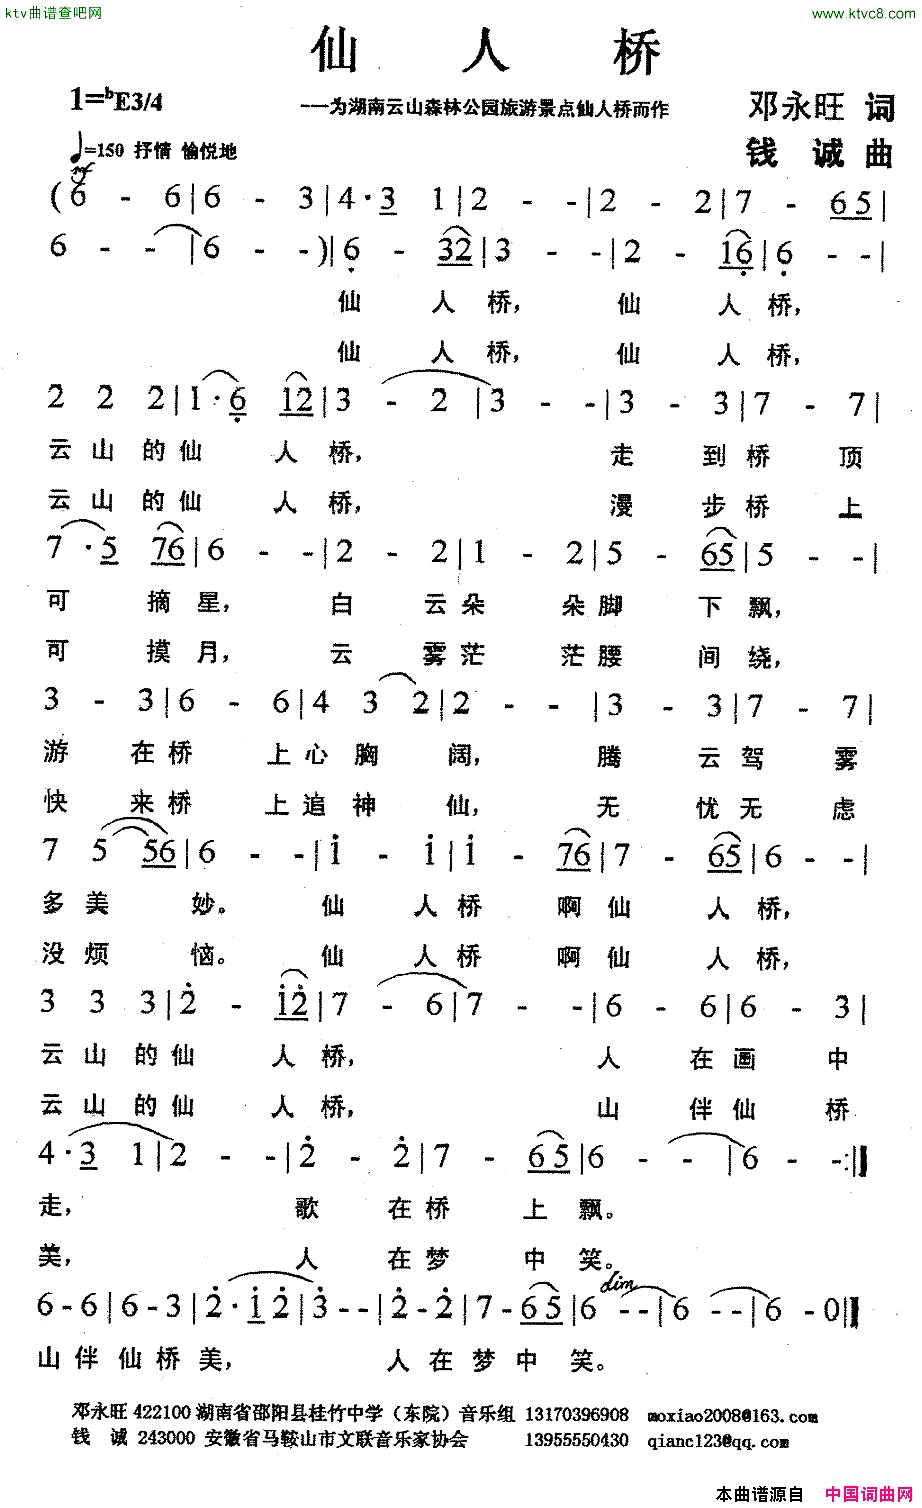 ktv曲谱查吧网
www.ktvc8.com
仙人桥
1=bE3/4
——为湖南云山森林公园旅游景点仙人桥而作
邓永旺 词
♩=150 抒情 愉悦地
钱 诚 曲
mf
(6 - 6|6 - 3|4·3 1|2 - -|2 - 2|7 - 65|
6 - -|6 - -)|6 - 32|3 - -|2 - 16|6 - -|
仙 人 桥, 仙 人 桥,
仙 人 桥, 仙 人 桥,
2 2 2|1·6 12|3 - 2|3 - -|3 - 3|7 - 7|
云 山 的 仙 人 桥, 走 到 桥 顶
云 山 的 仙 人 桥, 漫 步 桥 上
7·5 76|6 - -|2 - 2|1 - 2|5 - 65|5 - -|
可 摘 星, 白 云 朵 朵 脚 下 飘,
可 摸 月, 云 雾 茫 茫 腰 间 绕,
3 - 3|6 - 6|4 3 2|2 - -|3 - 3|7 - 7|
游 在 桥 上 心 胸 阔, 腾 云 驾 雾
快 来 桥 上 追 神 仙, 无 忧 无 虑
7 5 56|6 - -|i - i|i - 76|7 - 65|6 - -|
多 美 妙。 仙 人 桥 啊 仙 人 桥,
没 烦 恼。 仙 人 桥 啊 仙 人 桥,
3 3 3|2 - 12|7 - 6|7 - -|6 - 6|6 - 3|
云 山 的 仙 人 桥, 人 在 画 中
云 山 的 仙 人 桥, 山 伴 仙 桥
4·3 1|2 - -|2 - 2|7 - 65|6 - -|6 - -:||
走, 歌 在 桥 上 飘。
美, 人 在 梦 中 笑。
dim
6 - 6|6 - 3|2·1 2|3 - -|2 - 2|7 - 65|6 - -|6 - -|6 - 0||
山 伴 仙 桥 美, 人 在 梦 中 笑。
邓永旺 422100 湖南省邵阳县桂竹中学（东院）音乐组 13170396908 moxiao2008@163.com
钱 诚 243000 安徽省马鞍山市文联音乐家协会 13955550430 qianc123@qq.com
本曲谱源自 中国词曲网